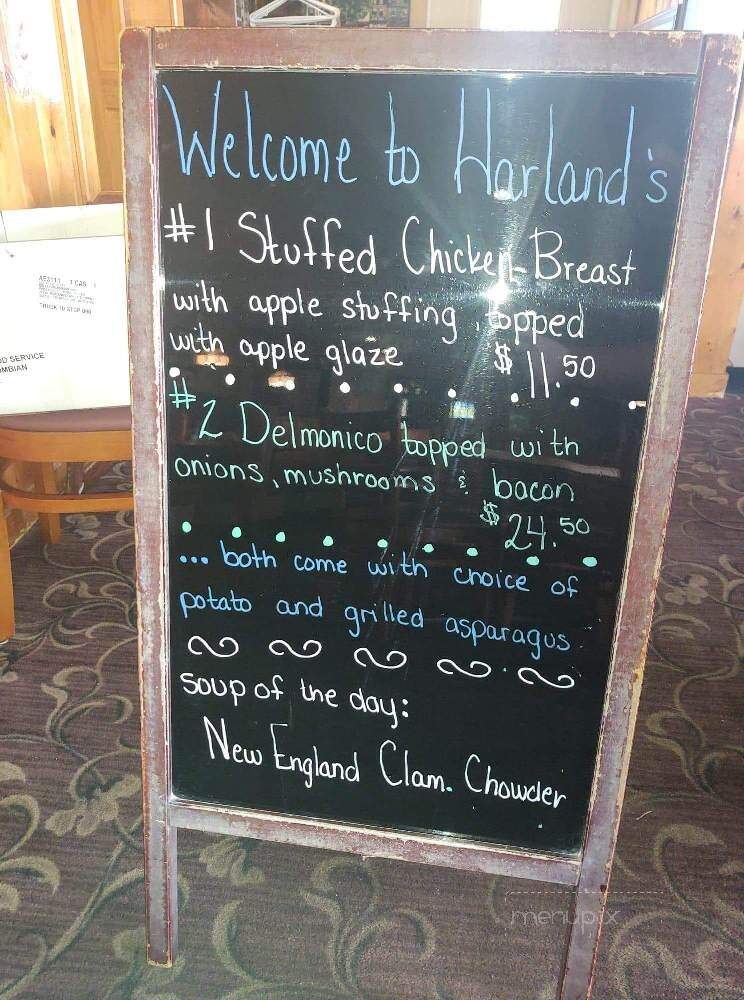 Welcome to Harland's
#1 Stuffed Chicken Breast
with apple stuffing, topped
with apple glaze $11.50
#2 Delmonico topped with
onions, mushrooms & bacon
$24.50
... both come with choice of
potato and grilled asparagus
soup of the day:
New England Clam Chowder
TRUCK ID STOP
SERVICE
menupix